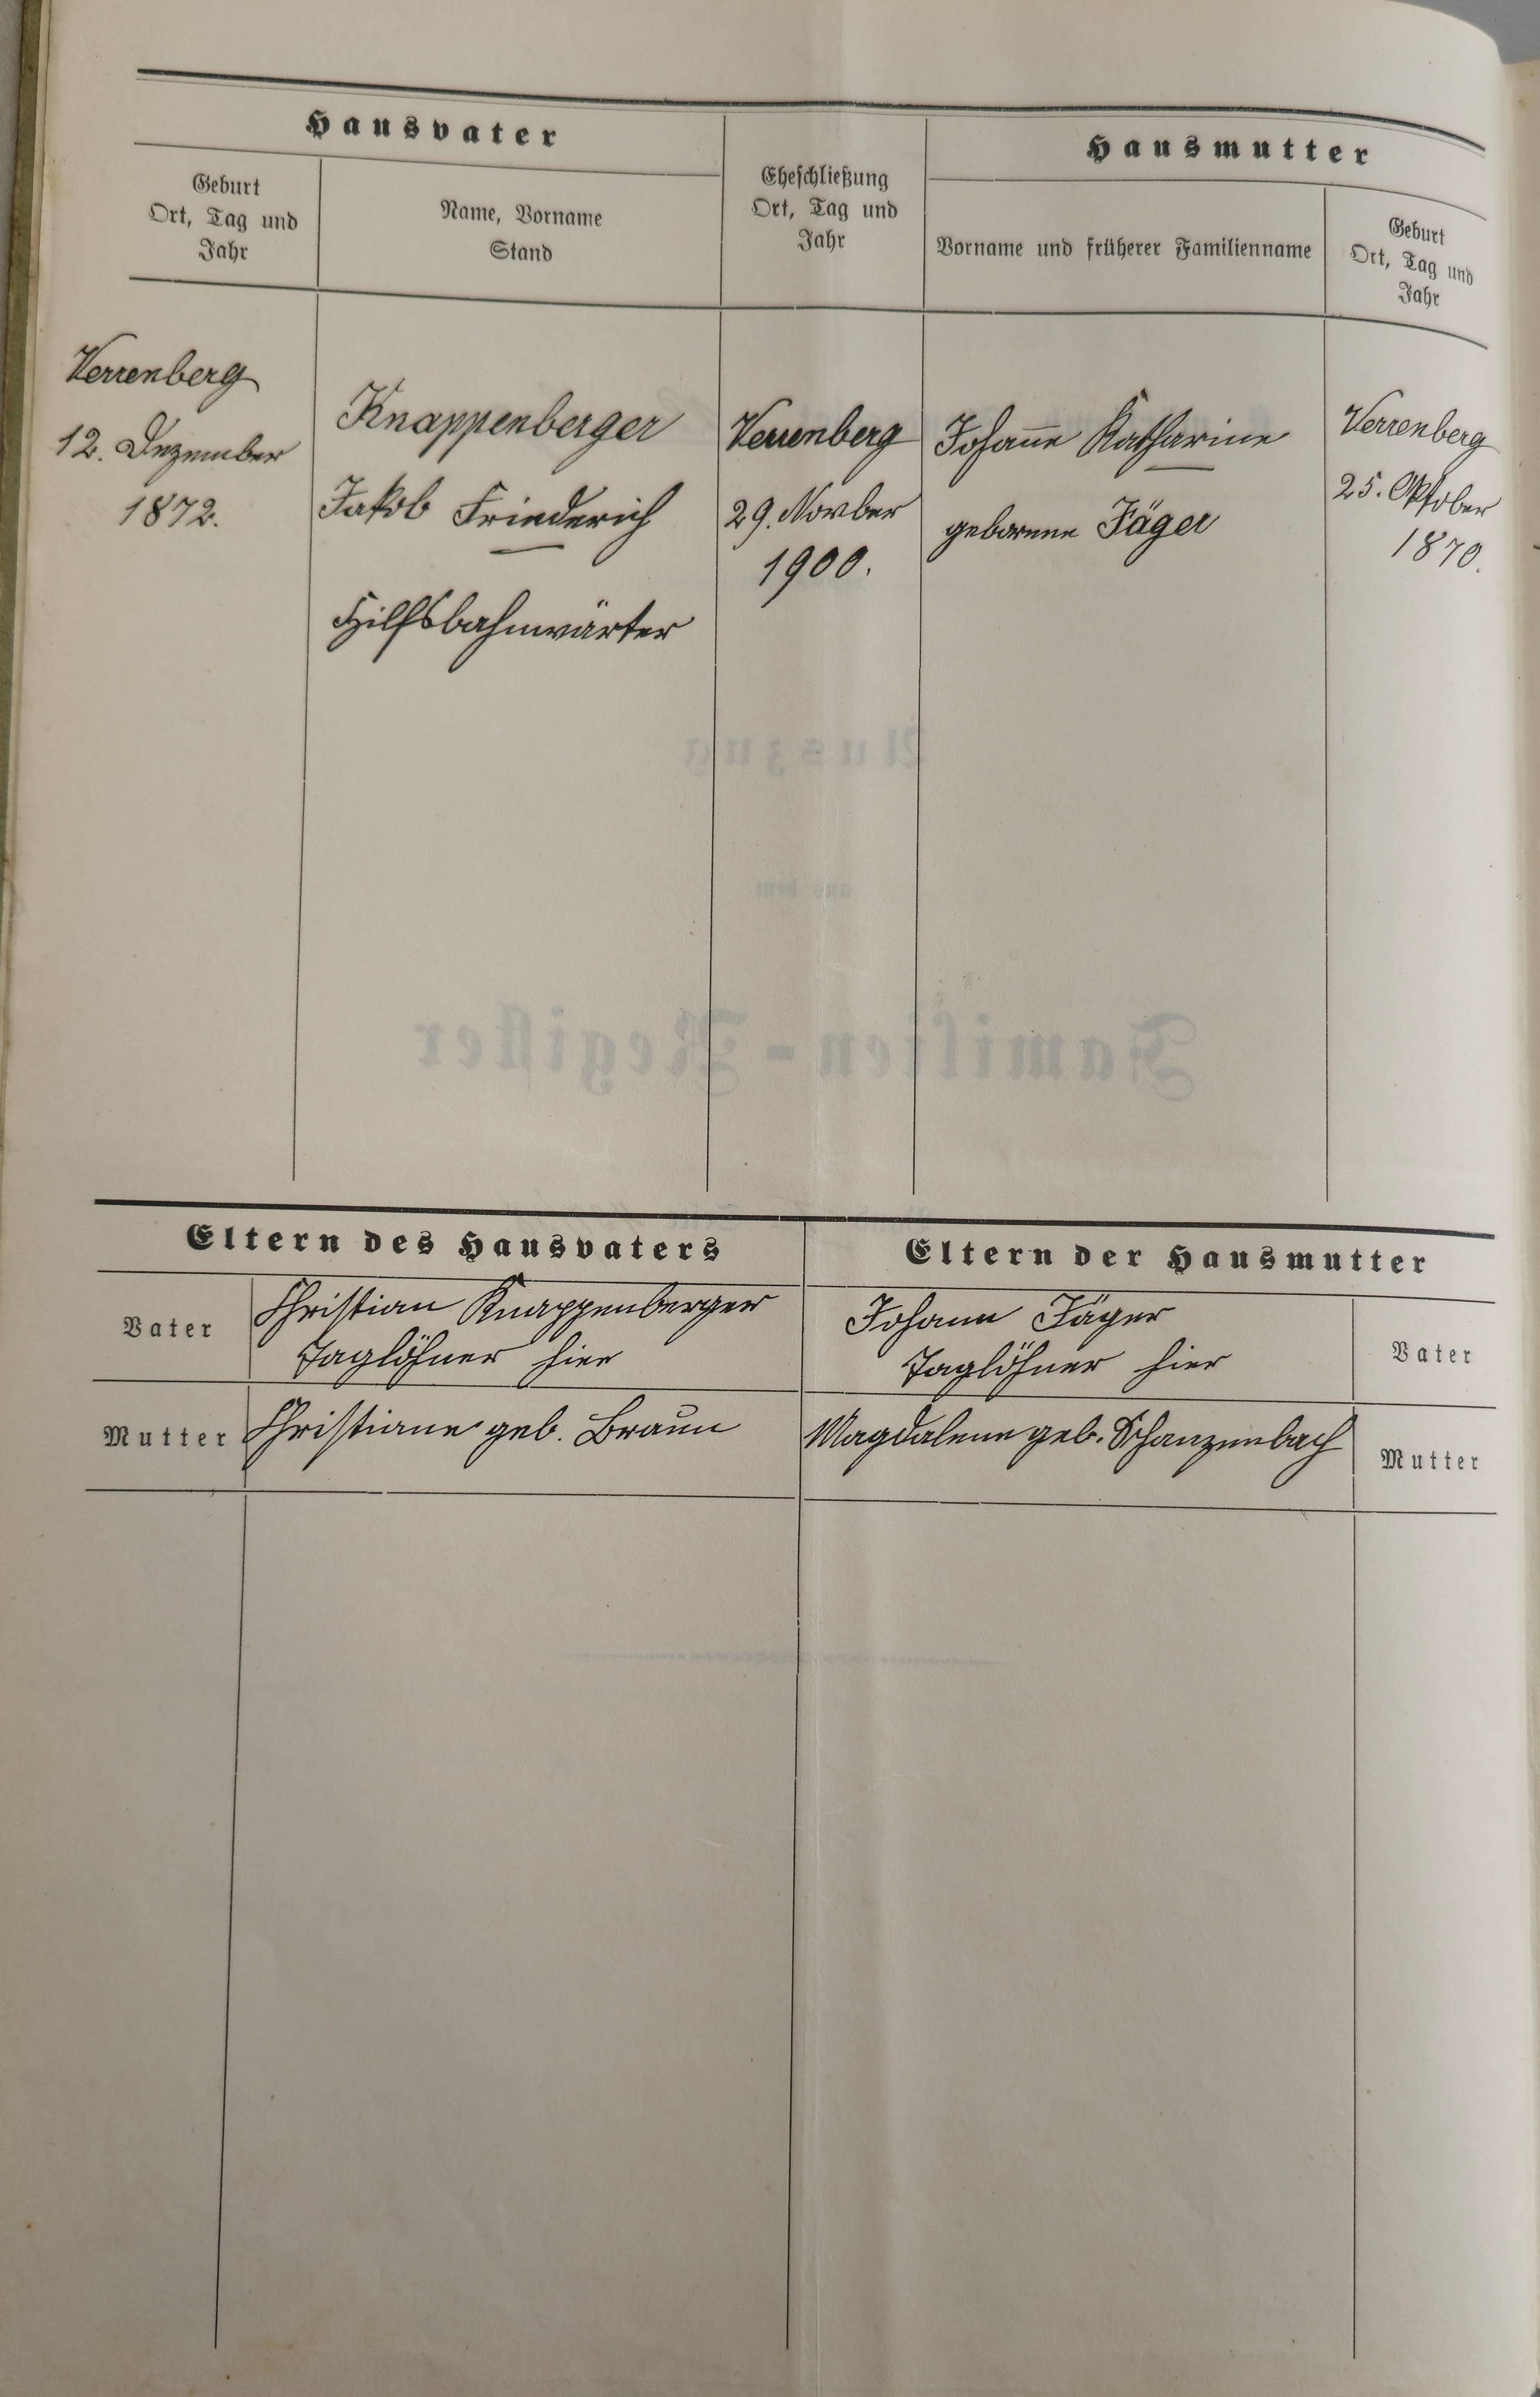 Hausvater
Geburt
Ort, Tag und
Jahr
Name, Vorname
Stand
Eheschließung
Ort, Tag und
Jahr
Hausmutter
Vorname und früherer Familienname
Geburt
Ort, Tag und
Jahr
Verrenberg
12. Dezember
1872.
Knappenberger
Jakob Friederich
Hilfsbahnwärter
Verrenberg
29. Novber
1900.
Johan̅e Katharine
geborene Jäger
Verrenberg
25. Oktober
1870.
Auszug
aus dem
Familien-Register
Eltern des Hausvaters
Vater
Christian Knappenberger
Taglöhner hier
Mutter
Christiane geb. Braun
Eltern der Hausmutter
Johann Jäger
Taglöhner hier
Vater
Magdalene geb. Schanzenbach
Mutter